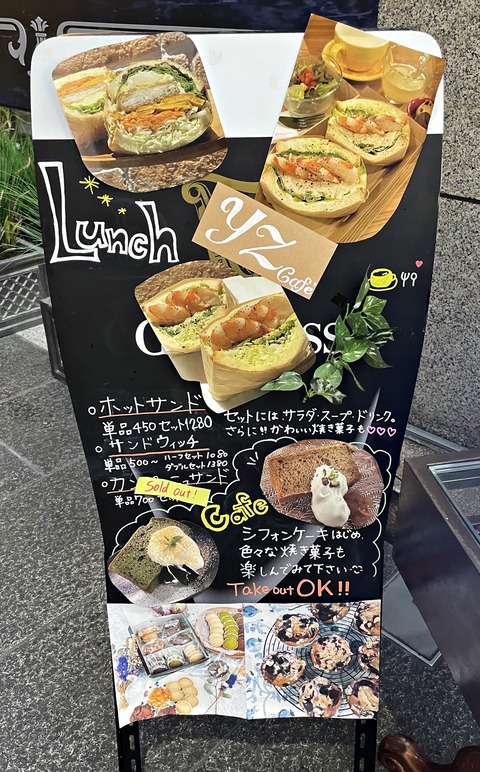 Lunch
YZ
Cafe
○ホットサンド
単品450 セット1280
○サンドウィッチ
単品500〜 ハーフセット1080
ダブルセット1380
Sold out!
単品700
セットには サラダ・スープ・ドリンク。
さらに!! かわいい焼き菓子も♡♡♡
Cafe
シフォンケーキはじめ、
色々な焼き菓子も
楽しんでみて下さい
Take out OK!!